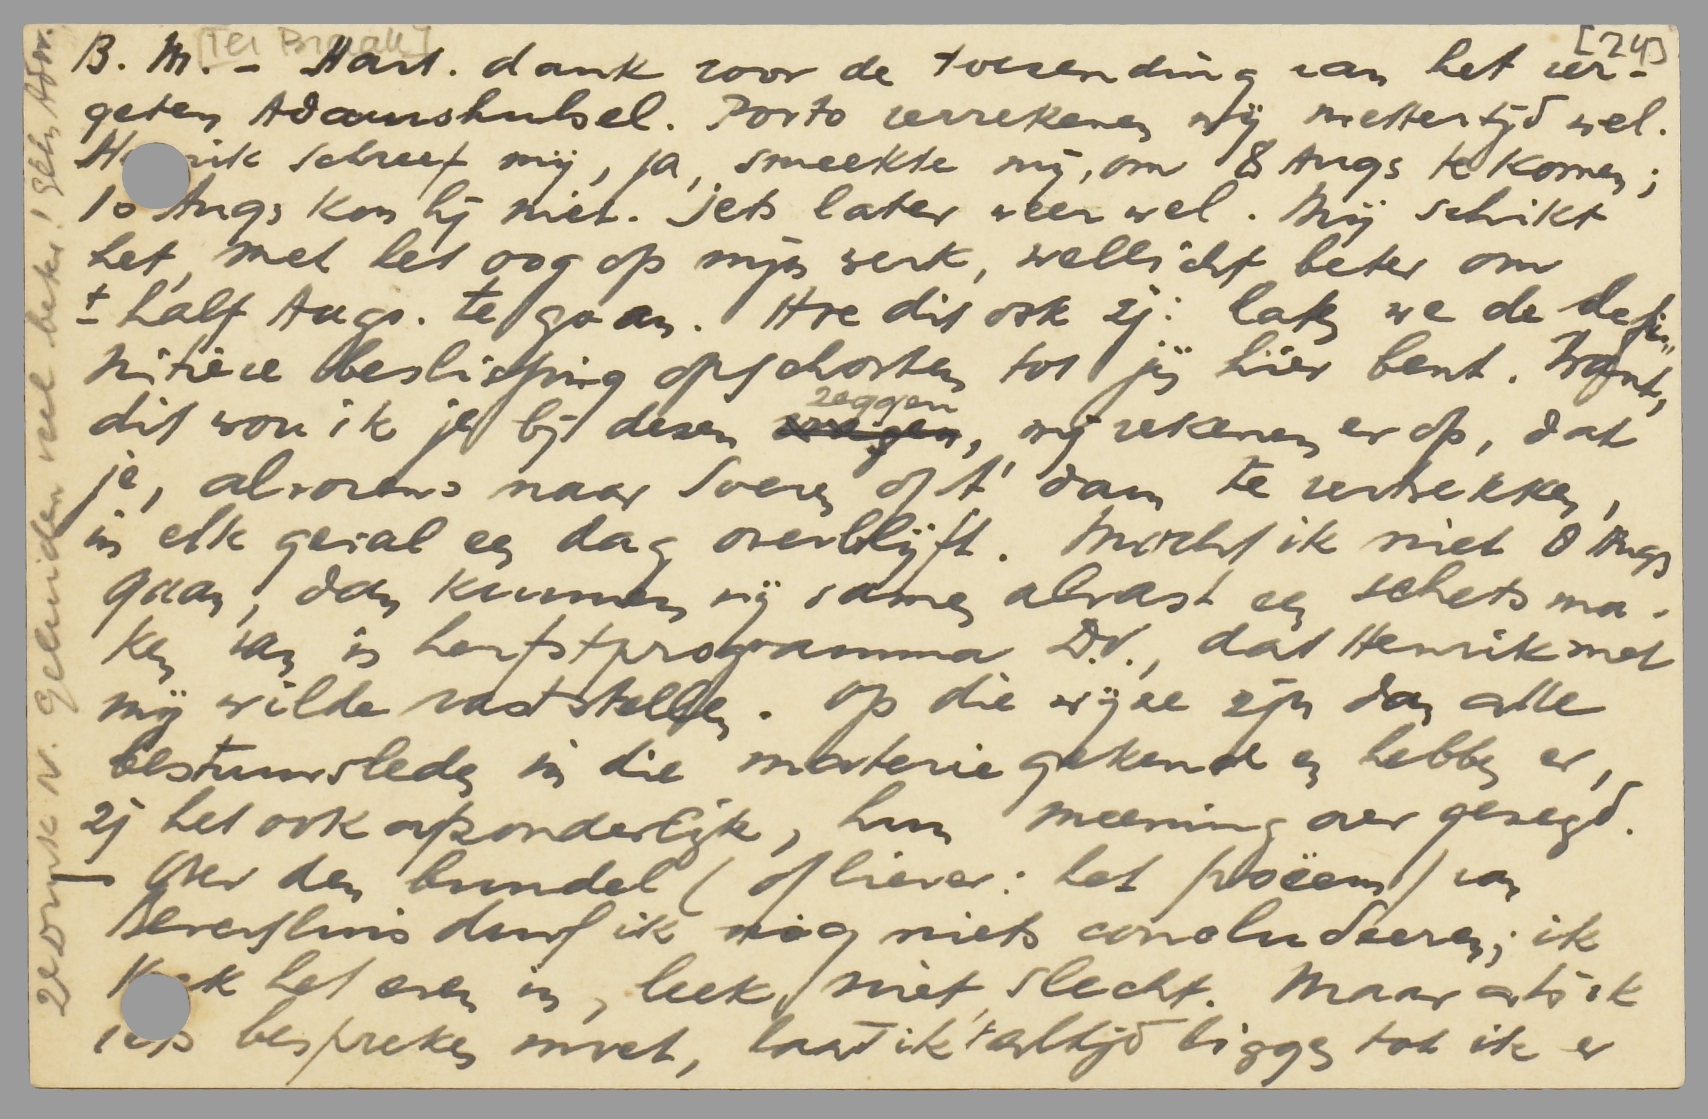 [Ter Braak]
[24]
B. M. – Hart. dank voor de toezending van het ver-
geten Adamshulsel. Porto verrekenen wij mettertijd wel.
schreef mij, ja, smeekte mij, om 8 Augs te komen;
10 Augs kon hij niet. Iets later weer wel. Mij schikt
het, met het oog op mijn werk, wellicht beter om
± half Augs. te gaan. Hoe dit ook zij: laten we de defi-
nitieve beslissing opschorten tot jij hier bent. Want,
dit wou ik je bij dezen zeggen, wij rekenen er op, dat
je, alvorens naar Soeren of A'dam te vertrekken,
in elk geval een dag overblijft. Mocht ik niet 8 Augs
gaan, dan kunnen wij samen alvast een schets ma-
ken van 'n herfstprogramma D.V., dat Henrik met
mij wilde vaststellen. Op die wijze zijn dan alle
bestuursleden in die materie gekend en hebben er,
zij het ook afzonderlijk, hun meening over gezegd.
– Over den bundel (of liever: het poëem) van
durf ik nog niets concludeeren; ik
het even in, leek niet slecht. Maar als ik
iets bespreken moet, laat ik 't altijd liggen tot ik er
2e Druk N. Geluiden veel beter!